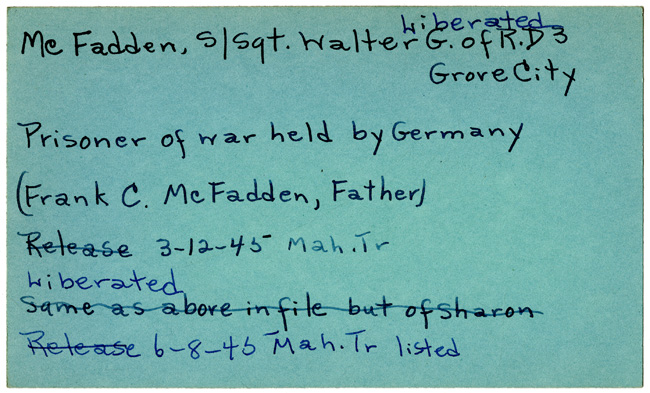 Liberated
Mc Fadden, S/Sgt. Walter G. of R.D 3
Grove City
Prisoner of war held by Germany
(Frank C. McFadden, Father)
Release 3-12-45 Mah.Tr
Liberated
Same as above in file but of Sharon
Release 6-8-45 Mah.Tr listed